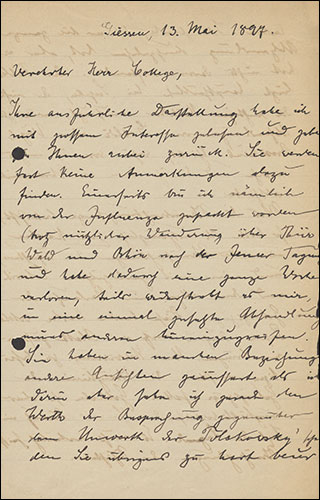 Giessen, 13. Mai 1897.
Verehrter Herr College,
Ihre ausführliche Darstellung habe ich
mit grossem Interesse gelesen und gebe
sie Ihnen zurück. Sie werden
fast keine Anmerkungen dazu
finden. Einerseits bin ich nämlich
von der Influenza gepackt worden
(trotz Wanderung über
Wald und nach der Jenaer
und habe dadurch eine ganze Woche
verloren, teils widerstrebt es mir,
in eine einmal gefasste Abhandlung
eines anderen hineinzugreifen.
Sie haben in mancher Beziehung
andere Ansichten geäussert als ich
aber sehe ich gerade den
Werth der Besprechung gegenüber
dem Unwerth der
den Sie übrigens zu hart